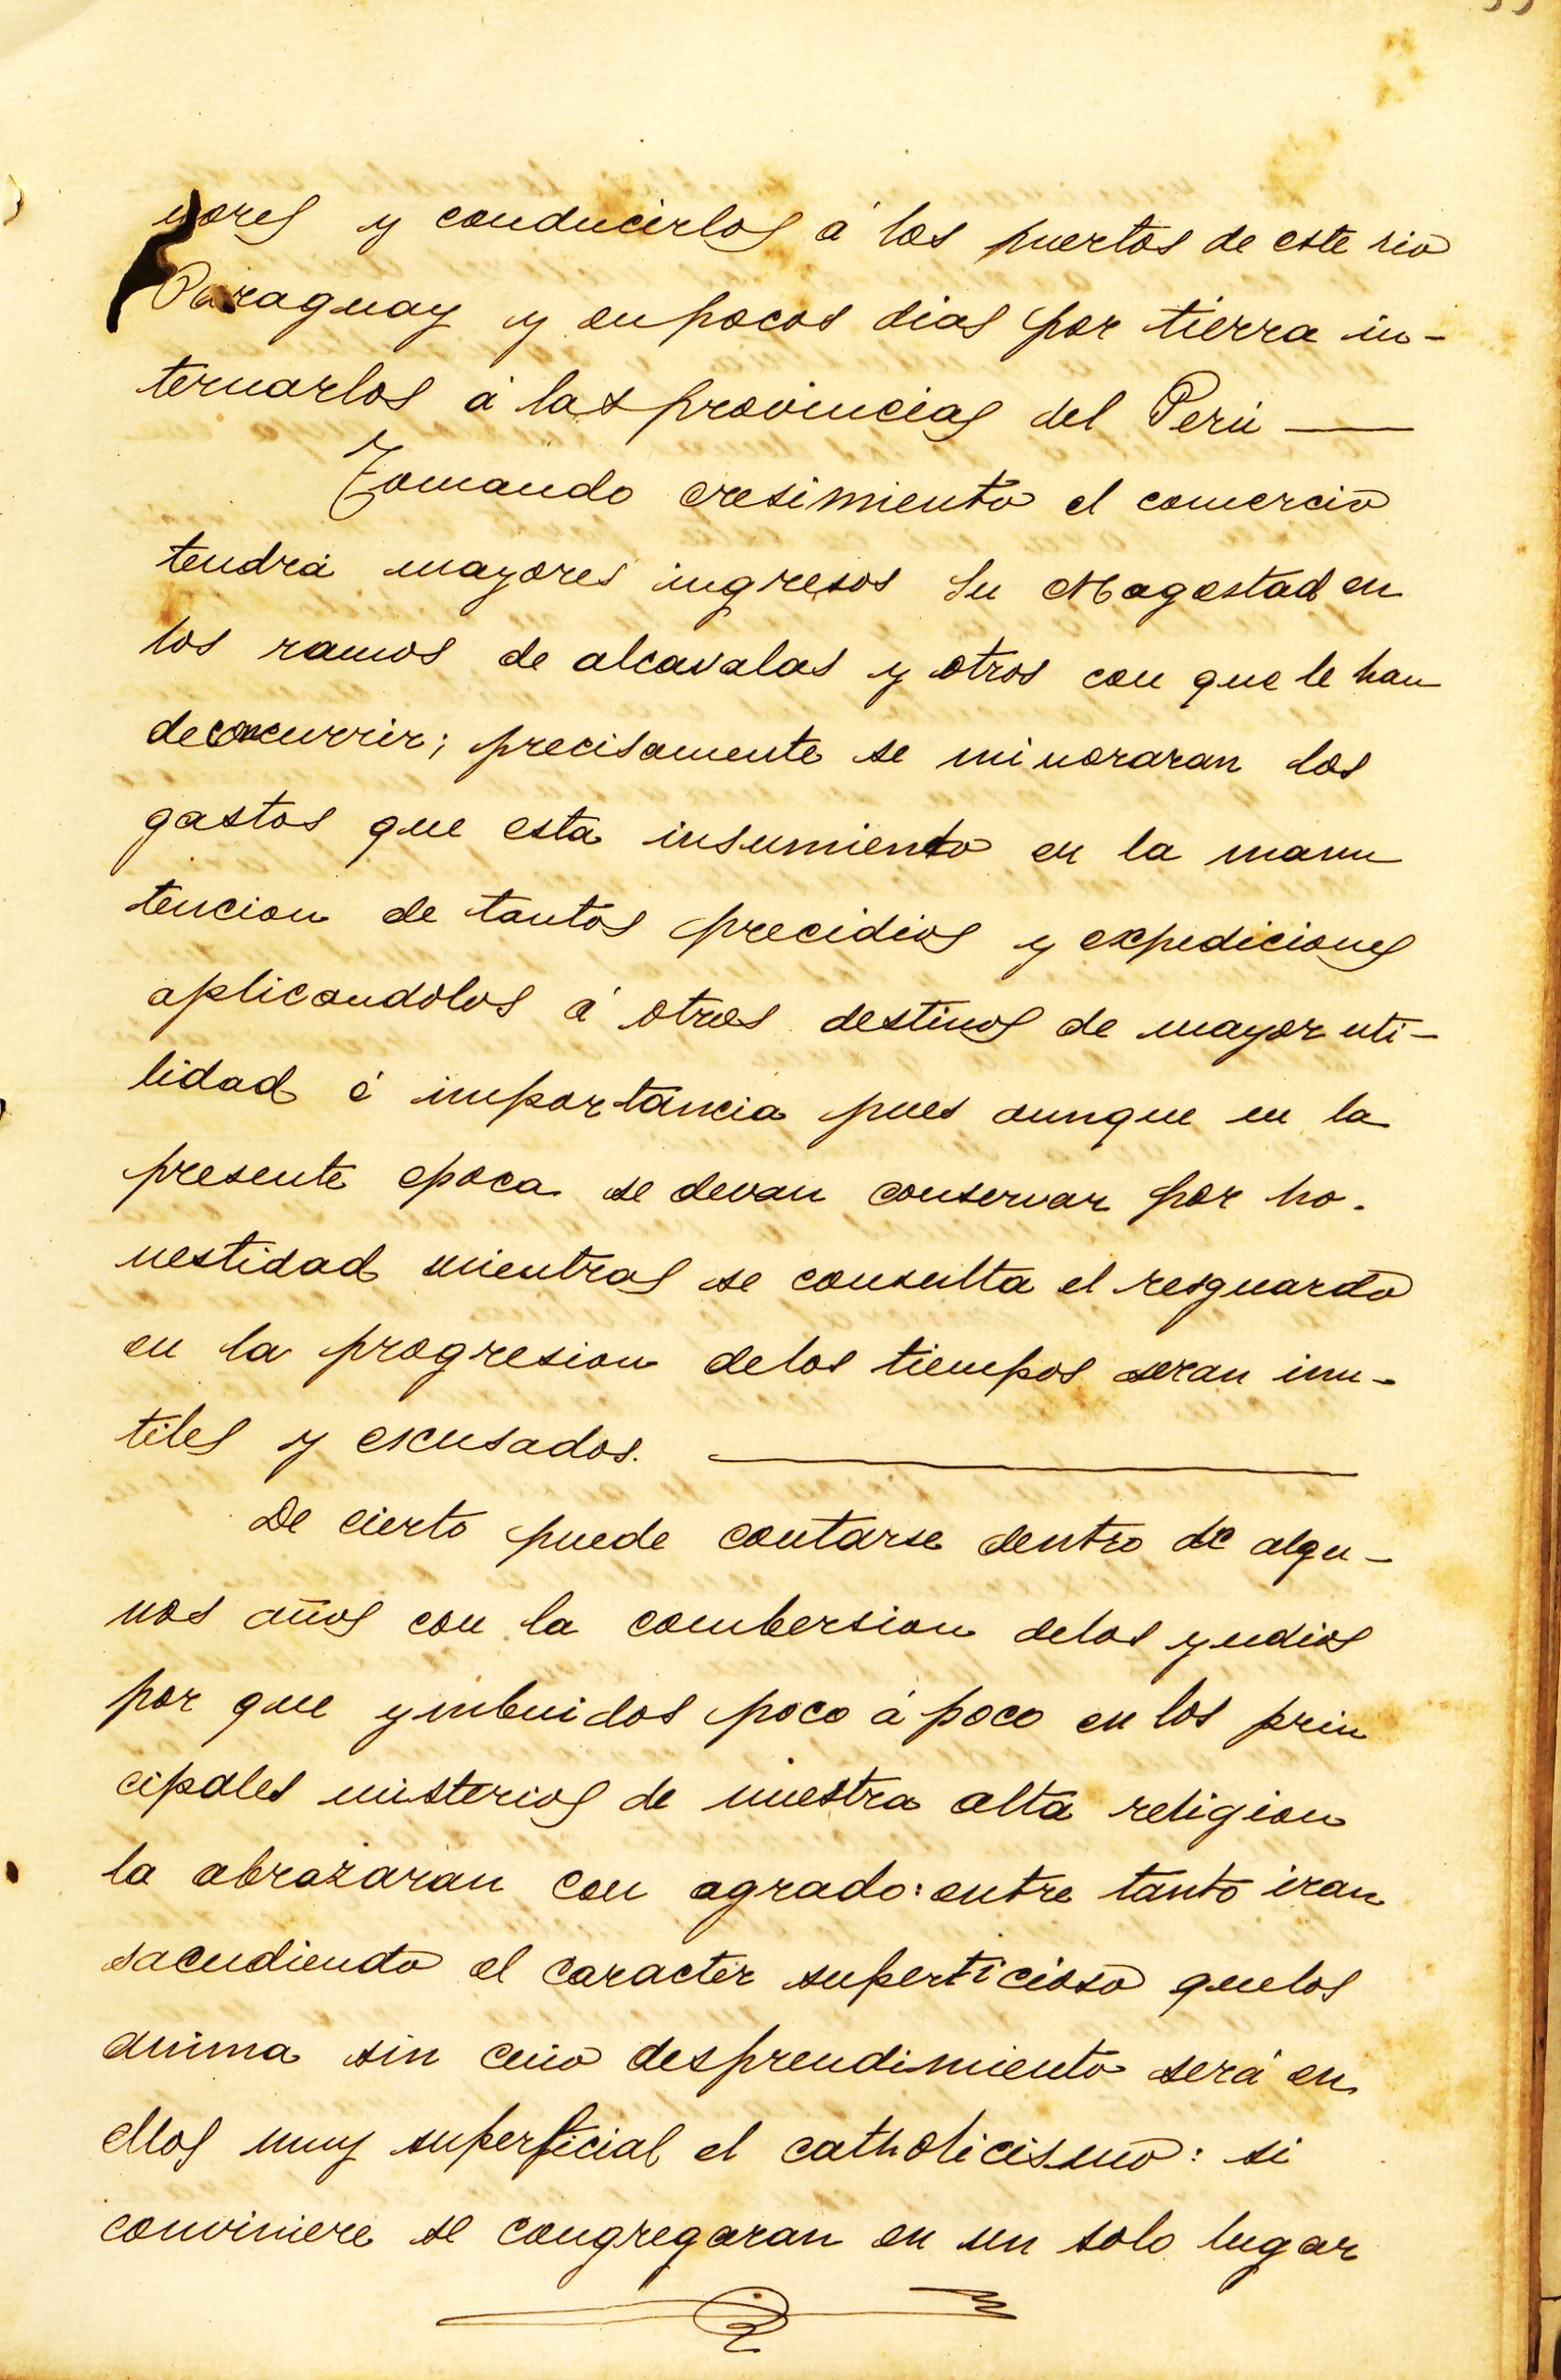 nores y conducirlos á los puertos de este rio
Paraguay y en pocos dias por tierra in-
ternarlos á las provincias del Perú —
Tomando cresimiento el comercio
tendrá mayores ingresos Su Magestad en
los ramos de alcavalas y otros con que le han
de concurrir; precisamente se minoraran los
gastos que esta insumiendo en la manu
tencion de tantos precidios y expediciones
aplicandolos á otros destinos de mayor uti-
lidad é importancia pues aunque en la
presente epoca se devan conservar por ho-
nestidad mientras se consulta el resguardo
en la progresion delos tiempos seran inu-
tiles y escusados. —
De cierto puede contarse dentro de algu-
nos años con la combersion delos yndios
por que ymbuidos poco á poco en los prin
cipales misterios de nuestra alta religion
la abrazaran con agrado: entre tanto iran
sacudiendo el caracter superticioso quelos
anima sin cuio desprendimiento será en
ellos muy superficial el catholicismo: si
conviniere se congregaran en un solo lugar